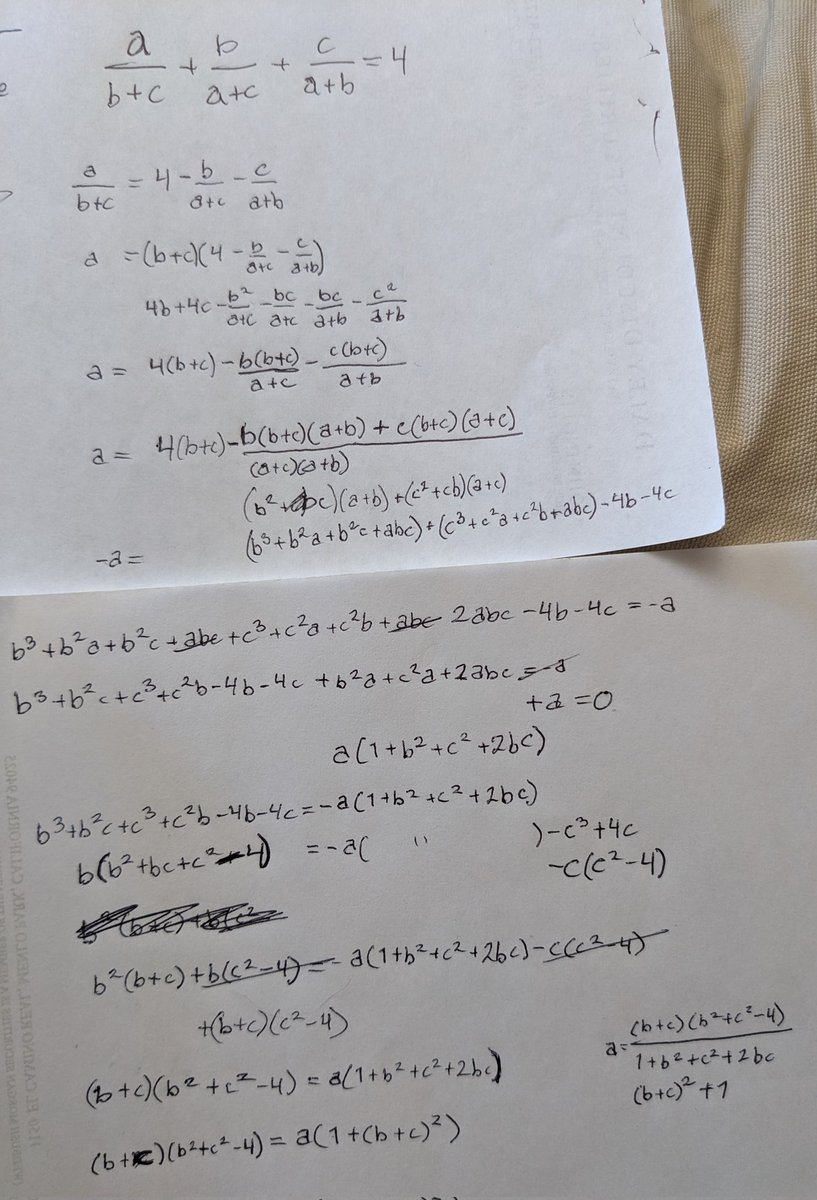 a/(b+c) + b/(a+c) + c/(a+b) = 4
a/(b+c) = 4 - b/(a+c) - c/(a+b)
a = (b+c)(4 - b/(a+c) - c/(a+b))
4b+4c - b²/(a+c) - bc/(a+c) - bc/(a+b) - c²/(a+b)
a = 4(b+c) - b(b+c)/(a+c) - c(b+c)/(a+b)
a = 4(b+c) - (b(b+c)(a+b) + c(b+c)(a+c))/((a+c)(a+b))
(b²+bc)(a+b)+(c²+cb)(a+c)
-a = (b³+b²a+b²c+abc)+(c³+c²a+c²b+abc)-4b-4c
b³+b²a+b²c+abc+c³+c²a+c²b+abc 2abc -4b-4c = -a
b³+b²c+c³+c²b-4b-4c +b²a+c²a+2abc = -a
+a = 0
a(1+b²+c²+2bc)
b³+b²c+c³+c²b-4b-4c = -a(1+b²+c²+2bc)
b(b²+bc+c²-4) = -a( " )-c³+4c
-c(c²-4)
b²(b+c)+b(c²-4) = -a(1+b²+c²+2bc)-c(c²-4)
+(b+c)(c²-4)
(b+c)(b²+c²-4) = a(1+b²+c²+2bc)
(b+c)(b²+c²-4) = a(1+(b+c)²)
a = (b+c)(b²+c²-4)/(1+b²+c²+2bc)
(b+c)²+1
1150 EL CAMINO REAL, MENLO PARK, CALIFORNIA 94025